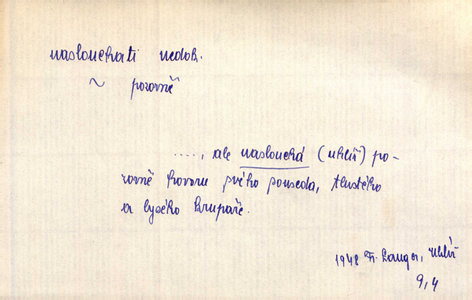 naslouchati nedok.
~ pozorně
...., ale naslouchá (uhlíř) po-
zorně hovoru svého souseda, tlustého
a lysého krupaře.
1942 Fr. Langer, Uhlíř
9,4